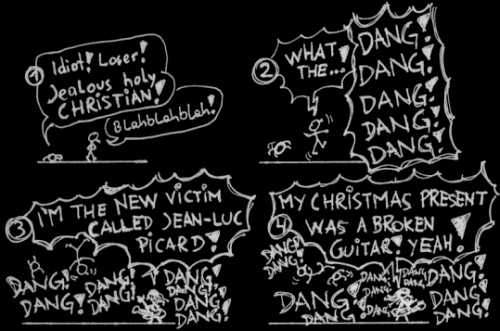 1
Idiot! Loser!
Jealous holy
CHRISTIAN!
BLahbLahbLah!
2
WHAT
THE...!
DANG!
DANG!
DANG!
DANG!
DANG!
3
I'M THE NEW VICTIM
CALLED JEAN-LUC
PICARD!
DANG!
DANG!
DANG!
DANG!
DANG!
DANG!
DANG!
DANG!
4
MY CHRISTMAS PRESENT
WAS A BROKEN
GUITAR! YEAH!
DANG!
DANG!
DANG!
DANG!
DANG!
DANG!
DANG!
DANG!
DANG!
DANG!